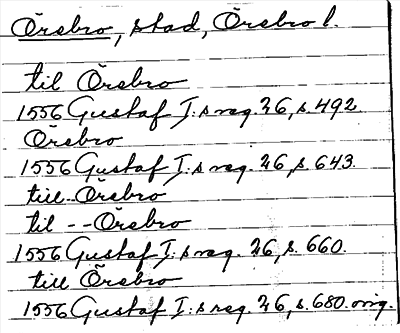 Örebro, stad, Örebro l.
til Örebro
1556 Gustaf I:s reg. 26, s. 492
Örebro
1556 Gustaf I:s reg. 26, s. 643.
till Örebro
til -- Örebro
1556 Gustaf I:s reg. 26, s. 660.
till Örebro
1556 Gustaf I:s reg. 26, s. 680. orig.